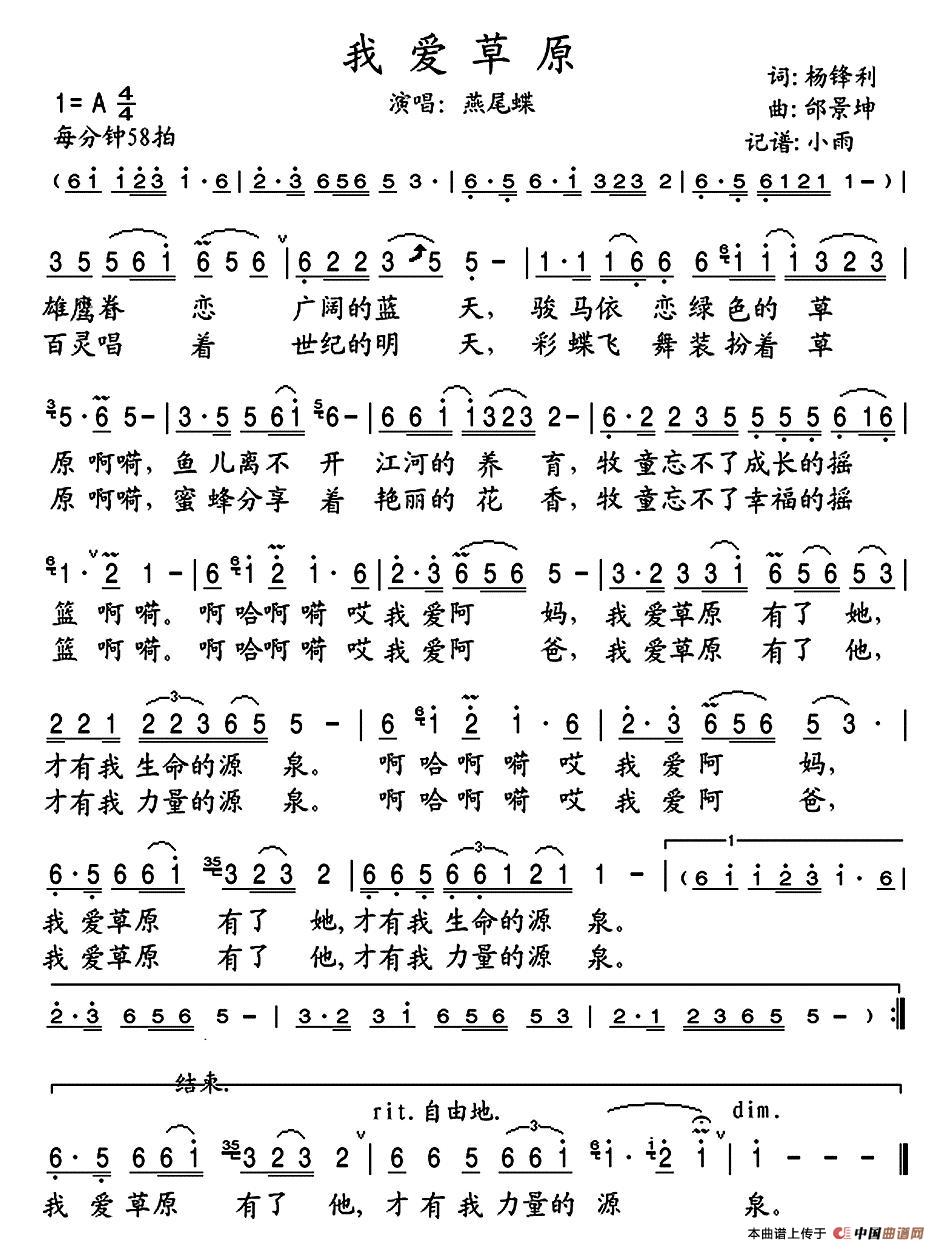 我爱草原
词:杨锋利
1=A 4/4
演唱：燕尾蝶
曲:邰景坤
每分钟58拍
记谱:小雨
(6i i23 i·6|2·3 656 5 3·|6·5 6·i 323 2|6·5 6121 1-)|
3 5 5 6 i 6 5 6 v|6 2 2 3 5 5-|1·1 1 6 6 6 6i i 1 3 2 3|
雄鹰眷 恋 广阔的蓝 天，骏马依 恋绿色的 草
百灵唱 着 世纪的明 天，彩蝶飞 舞装扮着 草
3 5·6 5-|3·5 5 6i 5 6-|6 6 i i323 2-|6·2 2 3 5 5 5 5 6 16|
原 啊嗬，鱼儿离不 开 江河的 养 育，牧童忘不了成长的摇
原 啊嗬，蜜蜂分享 着 艳丽的 花 香，牧童忘不了幸福的摇
6 1·v2 1-|6 6 i 2 i·6|2·3 6 5 6 5-|3·2 3 3 i 6 5 6 5 3|
篮 啊嗬。啊哈啊嗬 哎我爱阿 妈，我爱草原 有了她，
篮 啊嗬。啊哈啊嗬 哎我爱阿 爸，我爱草原 有了他，
2 2 1 3 2 2 3 6 5 5 -| 6 6 i 2 i·6|2·3 6 5 6 5 3·|
才有我 生命的源 泉。 啊 哈啊 嗬 哎 我 爱阿 妈，
才有我 力量的源 泉。 啊 哈啊 嗬 哎 我 爱阿 爸，
1
6·5 6 6 i 35 3 2 3 2 |6 6 5 3 6 6 1 2 1 1 -|(6 i i 2 3 i·6
我 爱草原 有了 她，才有我 生命的源 泉。
我 爱草原 有了 他，才有我 力量的源 泉。
2·3 6 5 6 5-|3·2 3 i 6 5 6 5 3|2·1 2 3 6 5 5-):‖
结束.
rit.自由地. dim.
6·5 6 6 i 35 3 2 3 2 v|6 6 5 3 6 6 i 6 i· i 2 i v|i - - -‖
我 爱草原 有了 他，才有我力量的 源 泉。
本曲谱上传于 中国曲谱网